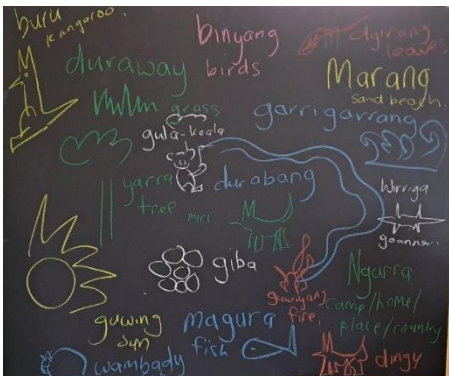 buru
kangaroo.
binyang
birds
dyirang
leaves
duraway
grass
Marang
sand beach.
garrigarrang
gula-koala
yarra
tree
durabang
miri
Wirriga
goanna.
giba
guwiyang
fire,
Ngurra
camp/home/
place/country
guwing
sun
magura
fish
wambady
dingy